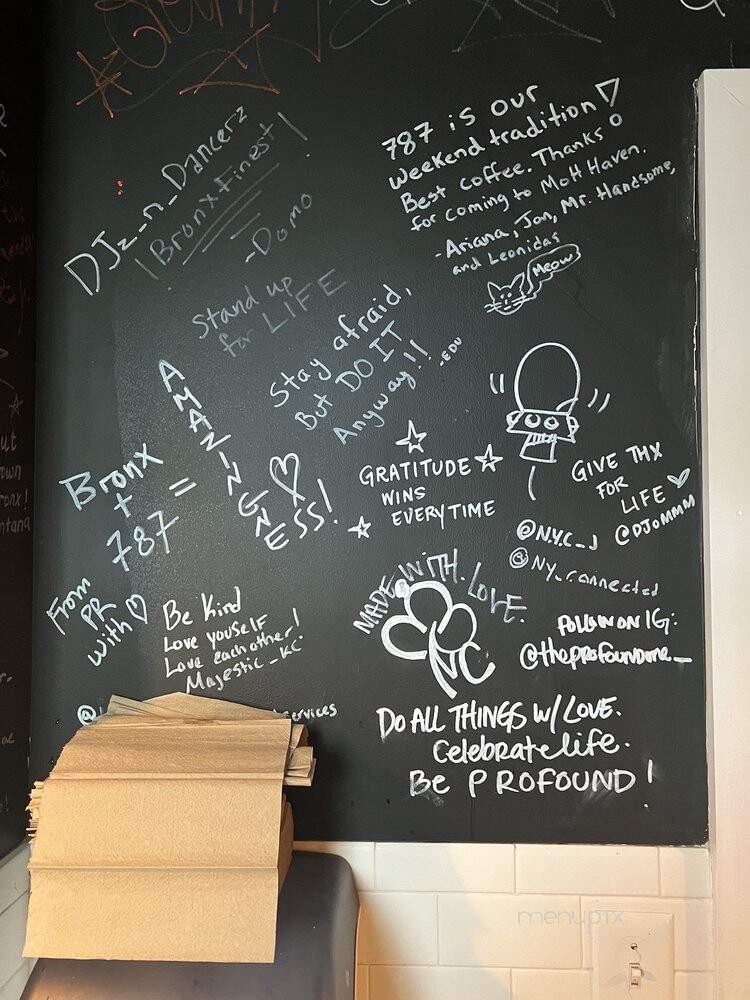 787 is our
weekend tradition!
Best coffee. Thanks
for coming to Mott Haven.
-Ariana, Jon, Mr. Handsome,
and Leonidas
Meow
DJz_n_Dancerz
Bronx Finest!
-Domo
Stand up
for LIFE
Stay afraid,
But DO IT
Anyway!!
-EDU
Bronx
+
787
=
AMAZINGNESS!
GRATITUDE
WINS
EVERYTIME
GIVE THX
FOR
LIFE
@DJOMMM
@N.Y.C_J
@NY_connected
From
PR
with
Be Kind
Love youself
Love each other!
Majestic_KC
MADE WITH. LOVE.
NC
FOLLOW ON IG:
@theprofoundme_
@
services
DO ALL THINGS W/ LOVE.
Celebrate life.
Be PROFOUND!
menupix